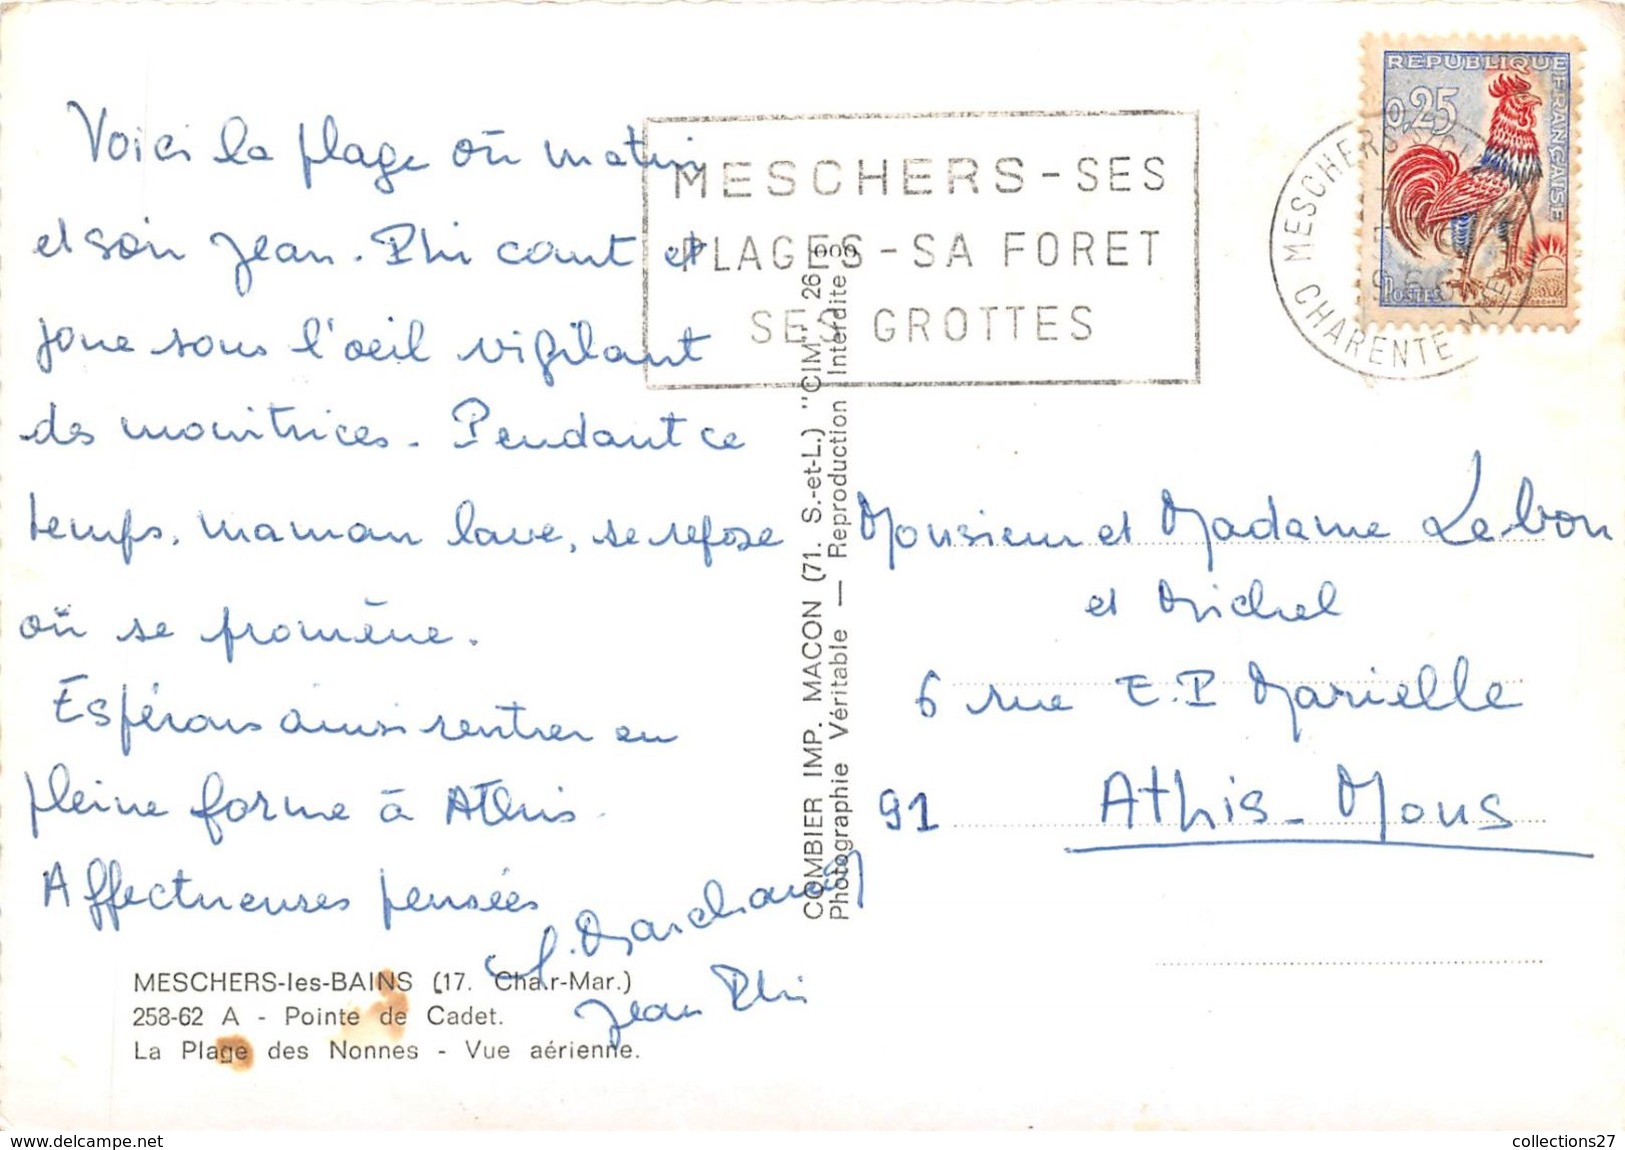 Voici la plage où matin
et soir Jean-Phi court et
joue sous l'oeil vigilant
des monitrices. Pendant ce
temps, maman lave, se repose
où se promène.
Espérons ainsi rentrer en
pleine forme à Athis.
Affectueuses pensées
Jean Phi
MESCHERS-les-BAINS (17. Char-Mar.)
258-62 A - Pointe de Cadet.
La Plage des Nonnes - Vue aérienne.
COMBIER IMP. MACON (71. S.-et-L.) "CIM"
Photographie Véritable — Reproduction Interdite
MESCHERS - SES
PLAGES - SA FORET
SES GROTTES
REPUBLIQUE FRANÇAISE
0,25
POSTES
MESCHERS
CHARENTE MME
Monsieur et Madame Lebon
et Michel
6 rue E.P Marielle
91 Athis-Mons
www.delcampe.net
collections27